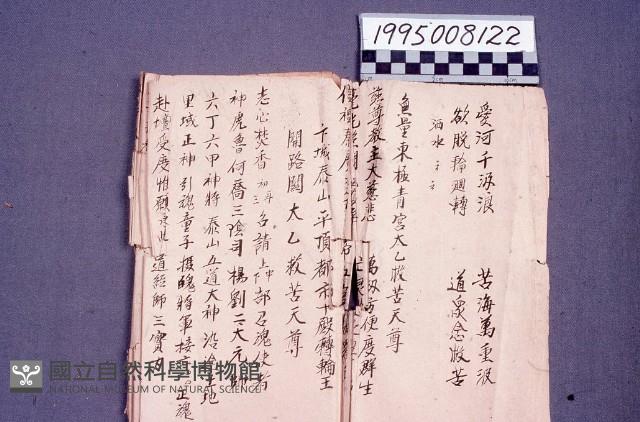 1995008122
愛河千汲浪 苦海萬重波
欲脫輪廻轉 道衆念救苦
洒水
無量東極青宮大乙救苦天尊
慈尊教主大慈悲 萬級方便度群生
卞城泰山平頂都市十殿轉輪王
開路關大乙救苦天尊
志心焚香初三再名請上中下部召魂使者
神虎魯何喬三陰司楊劉二大元帥
六丁六甲神將泰山五道大神沿途土地
里域正神引魂童子攝魄將軍接正魂
赴壇受度惟願道經師三寶力
國立自然科學博物館
NATIONAL MUSEUM OF NATURAL SCIENCE